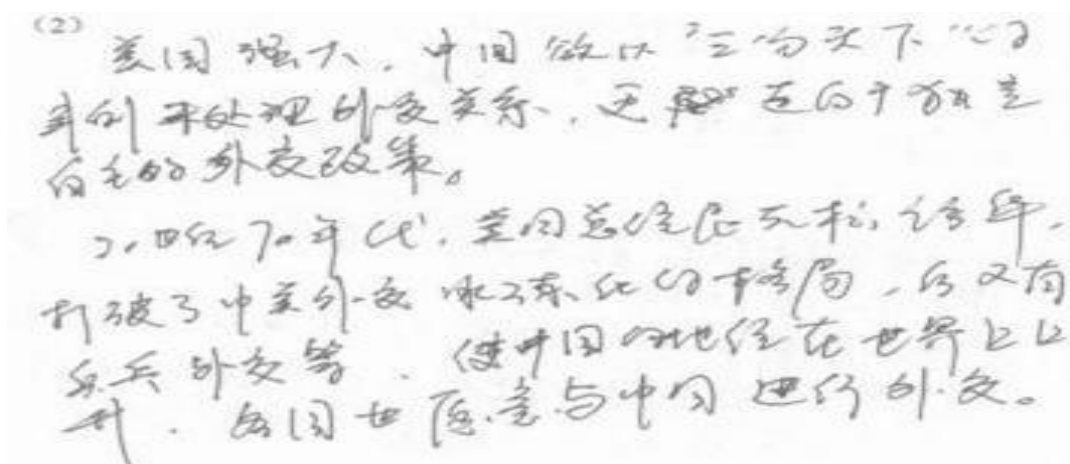 (2)
美国强大，中国欲以“三分天下”的
来处理外交关系，更 适的于独立
自主的外交政策。
20世纪70年代，美国总统尼克松访华，
打破了中美外交冰冻化的格局，后又有
乒乓外交等，使中国的地位在世界上上
升，各国也愿意与中国进行外交。